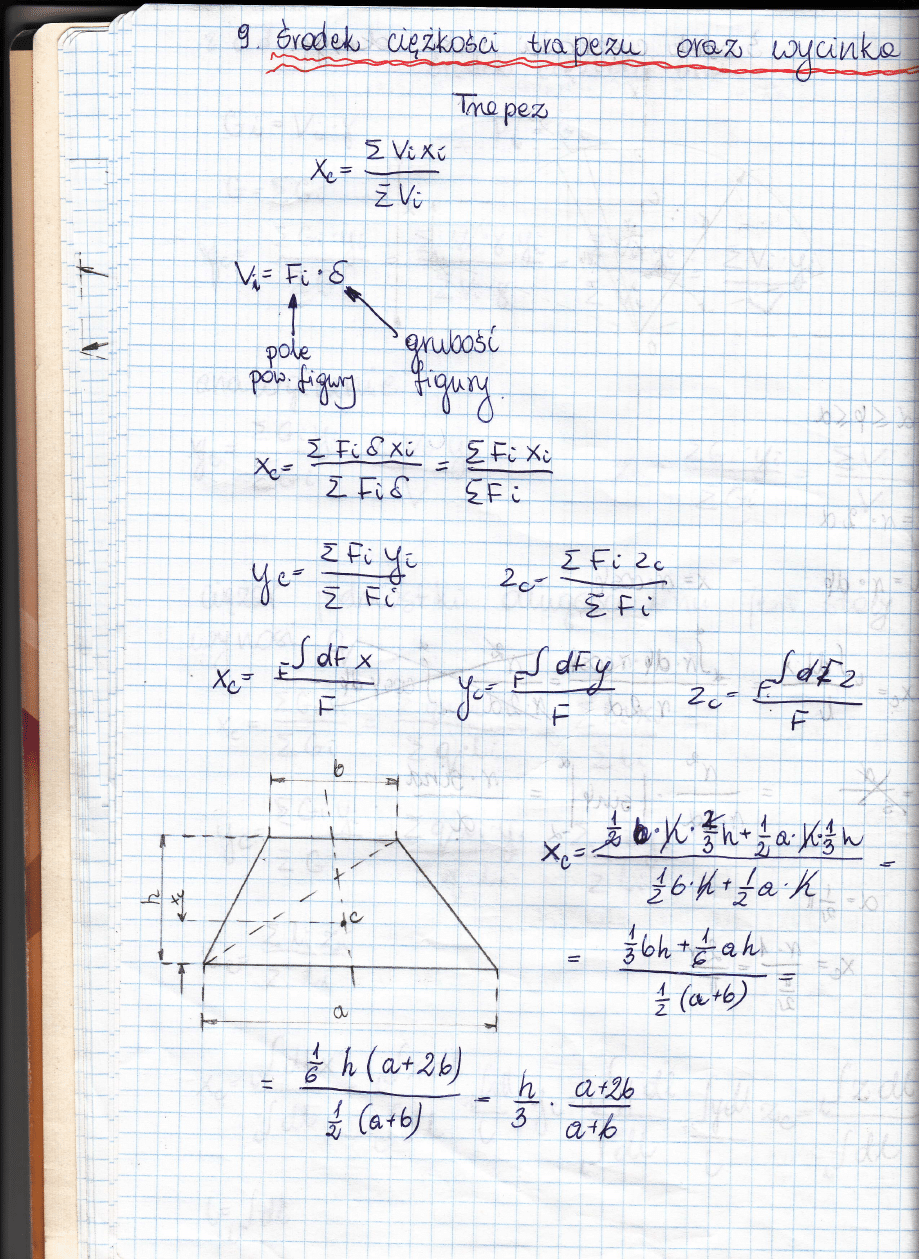 9. Środek ciężkości trapezu oraz wycinka
Trapez
Xc = Σ Vi xi / Σ Vi
Vi = Fi · δ
pole pow. figury
grubość figury
Xc = Σ Fi δ xi / Σ Fi δ = Σ Fi xi / Σ Fi
yc = Σ Fi yi / Σ Fi    zc = Σ Fi zc / Σ Fi
xc = F∫ dF x / F    yc = F∫ dF y / F    zc = F∫ dF z / F
b
h
xc
c
a
Xc = (1/2 b·h·2/3 h + 1/2 a·h·1/3 h) / (1/2 b·h + 1/2 a·h) =
= (1/3 bh + 1/6 ah) / (1/2 (a+b)) =
= (1/6 h (a+2b)) / (1/2 (a+b)) = h/3 · (a+2b) / (a+b)